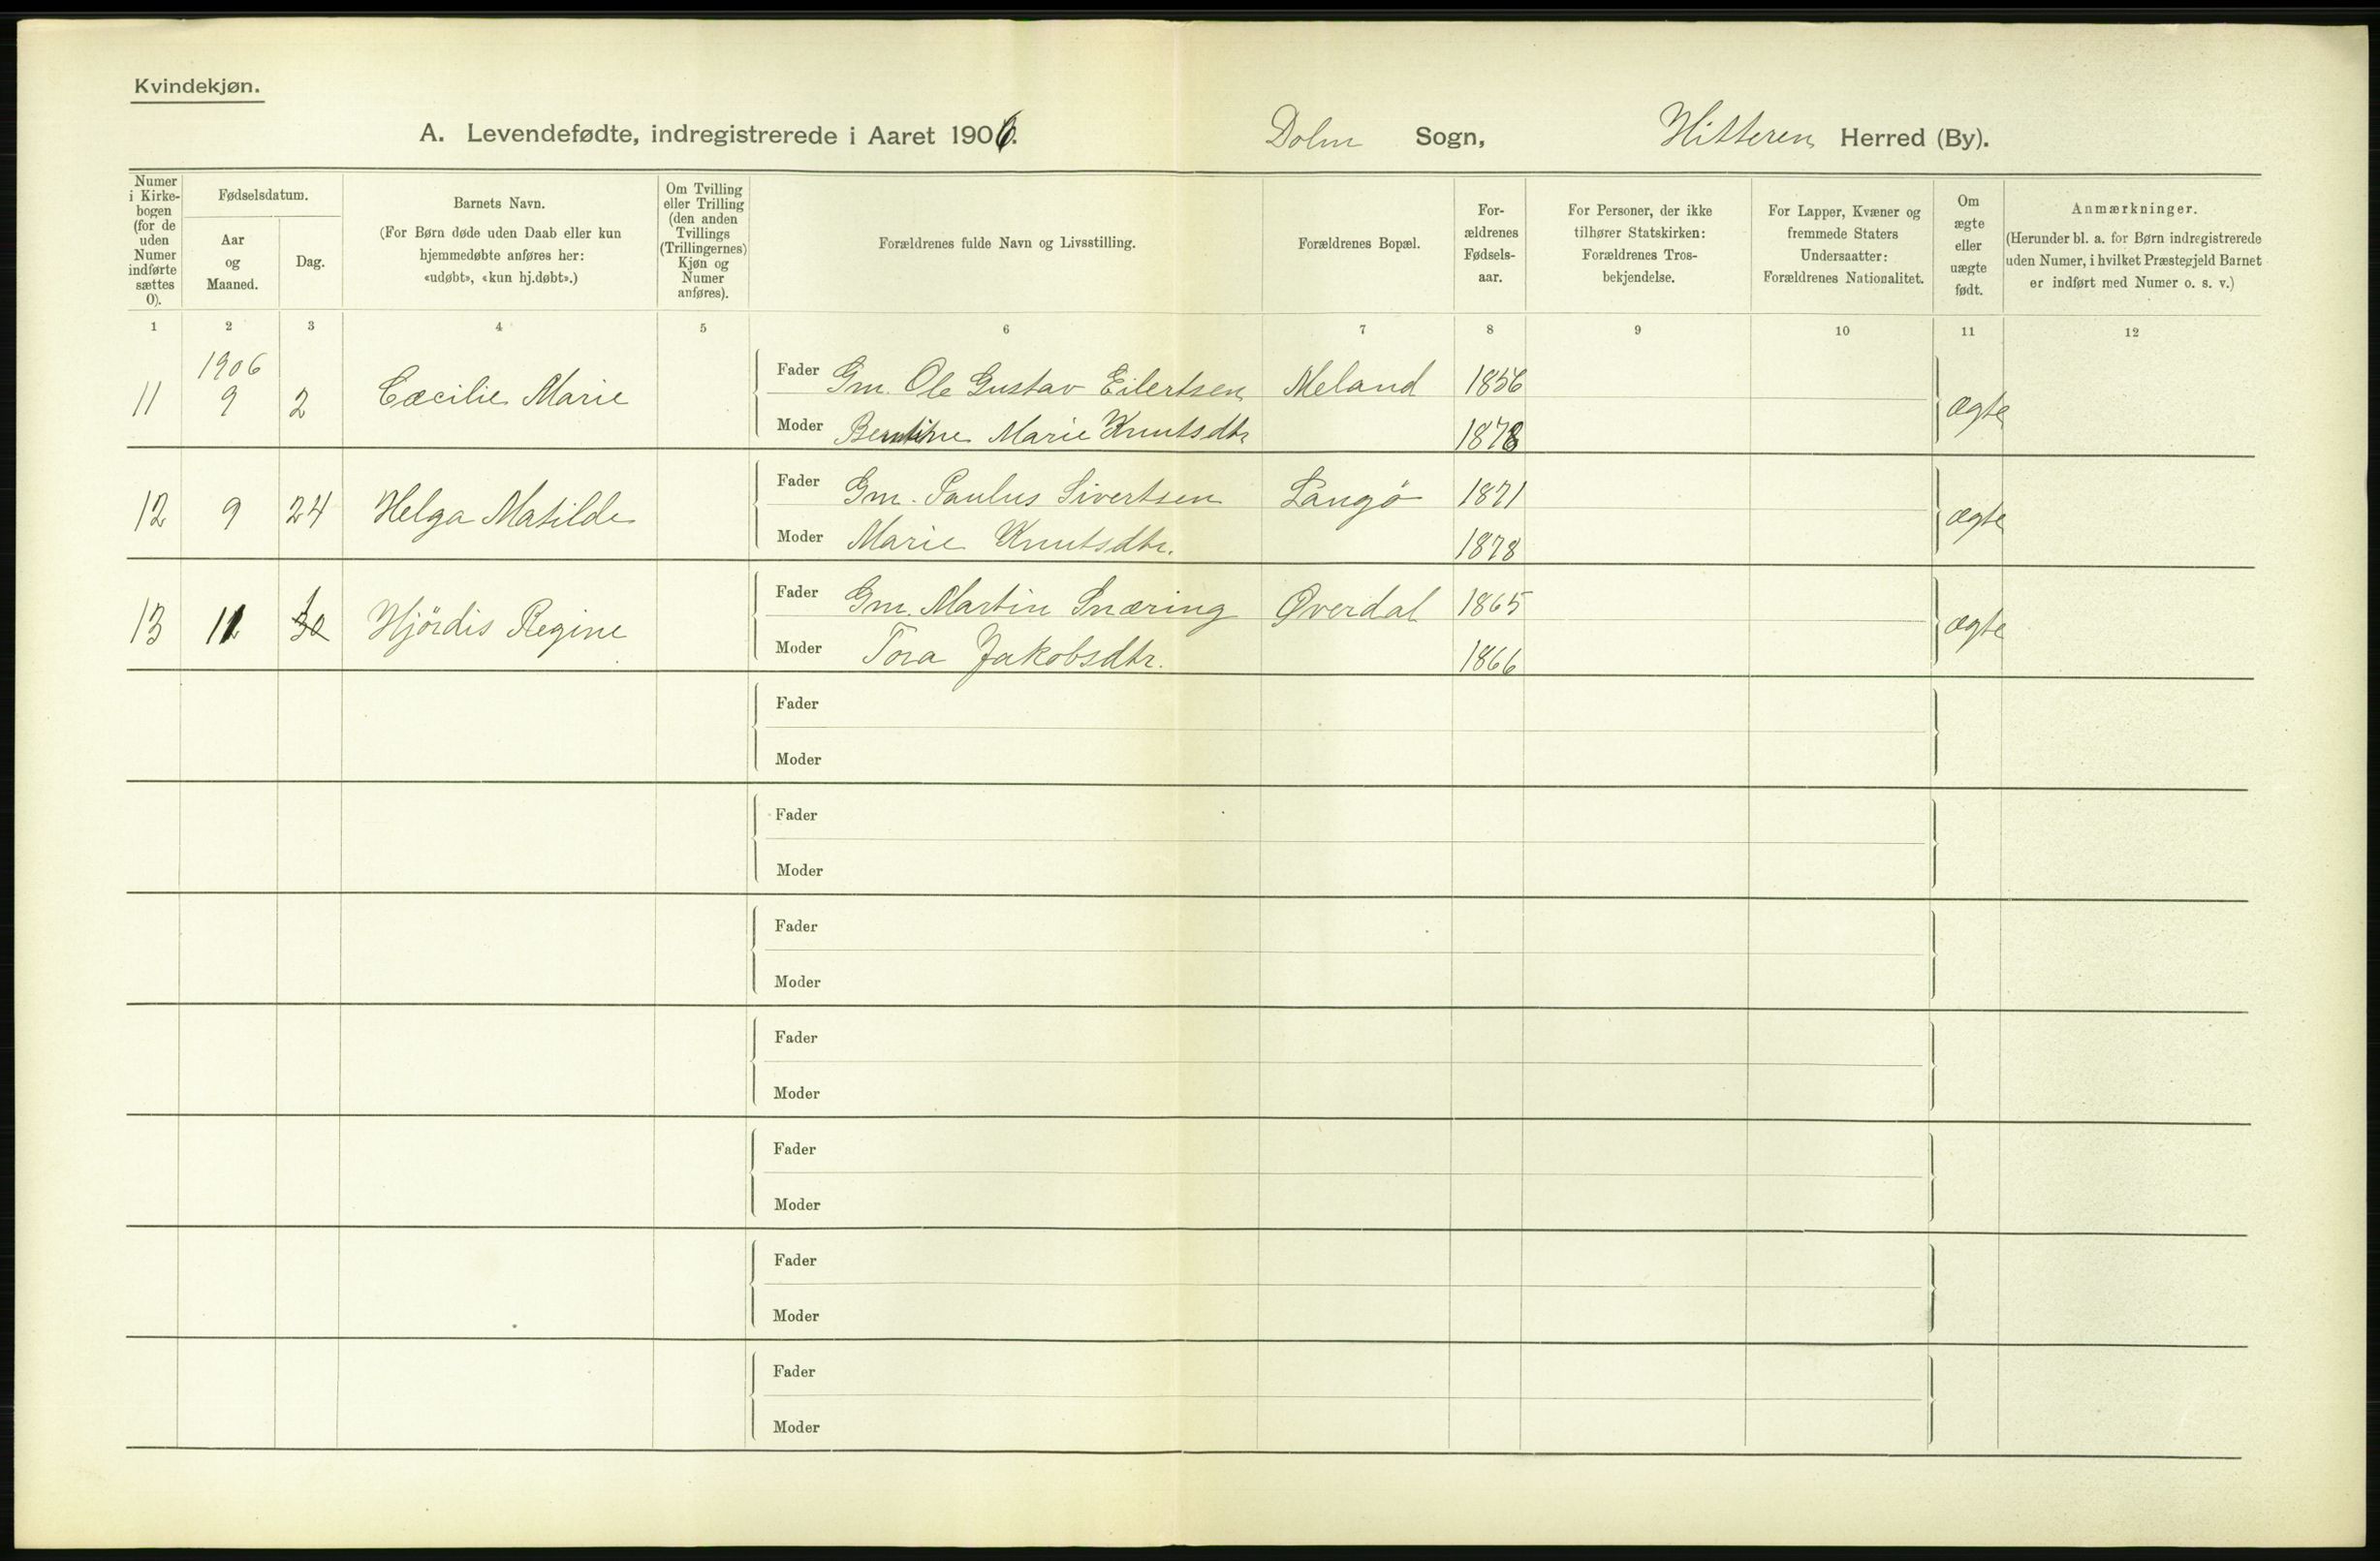 Kvindekjøn.
A. Levendefødte, indregistrerede i Aaret 1906. Dolm Sogn, Hitteren Herred (By).
Numer i Kirke-bogen (for de uden Numer indførte sættes 0).
Fødselsdatum.
Aar og Maaned.
Dag.
Barnets Navn.
(For Børn døde uden Daab eller kun hjemmedøbte anføres her: «udøbt», «kun hj.døbt».)
Om Tvilling eller Trilling (den anden Tvillings (Trillingernes) Kjøn og Numer anføres).
Forældrenes fulde Navn og Livsstilling.
Forældrenes Bopæl.
For-ældrenes Fødsels-aar.
For Personer, der ikke tilhører Statskirken: Forældrenes Tros-bekjendelse.
For Lapper, Kvæner og fremmede Staters Undersaatter: Forældrenes Nationalitet.
Om ægte eller uægte født.
Anmærkninger.
(Herunder bl. a. for Børn indregistrerede uden Numer, i hvilket Præstegjeld Barnet er indført med Numer o. s. v.)
1 2 3 4 5 6 7 8 9 10 11 12
1906
11 9 2 Cæcilie Marie Fader Gm. Ole Gustav Eilertsen Meland 1856 ægte
Moder Berntine Marie Knutsdtr 1878
12 9 24 Helga Matilde Fader Gm. Paulus Sivertsen Langö 1871 ægte
Moder Marie Knutsdtr. 1878
13 11 30 Hjördis Regine Fader Gm. Martin Snæring Øverdal 1865 ægte
Moder Tora Jakobsdtr. 1866
Fader
Moder
Fader
Moder
Fader
Moder
Fader
Moder
Fader
Moder
Fader
Moder
Fader
Moder